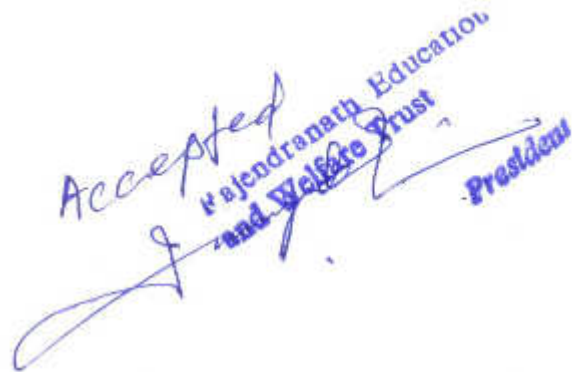 Accepted
Rajendranath Education
and Welfare Trust
President